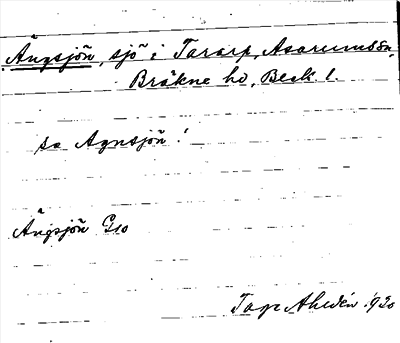 Ängsjön, sjö i Tararp, Asarumssn,
Bräkne hd, Blek. l.
se Agnsjön!
Ängsjön G10
Tage Ahldén 1920